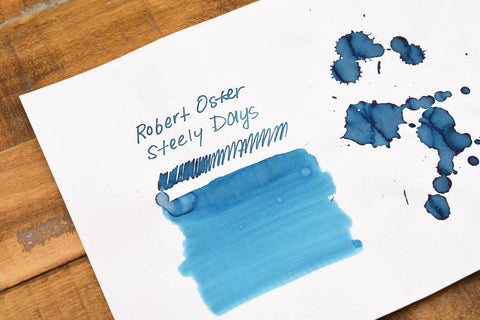 Robert Oster
Steely Days